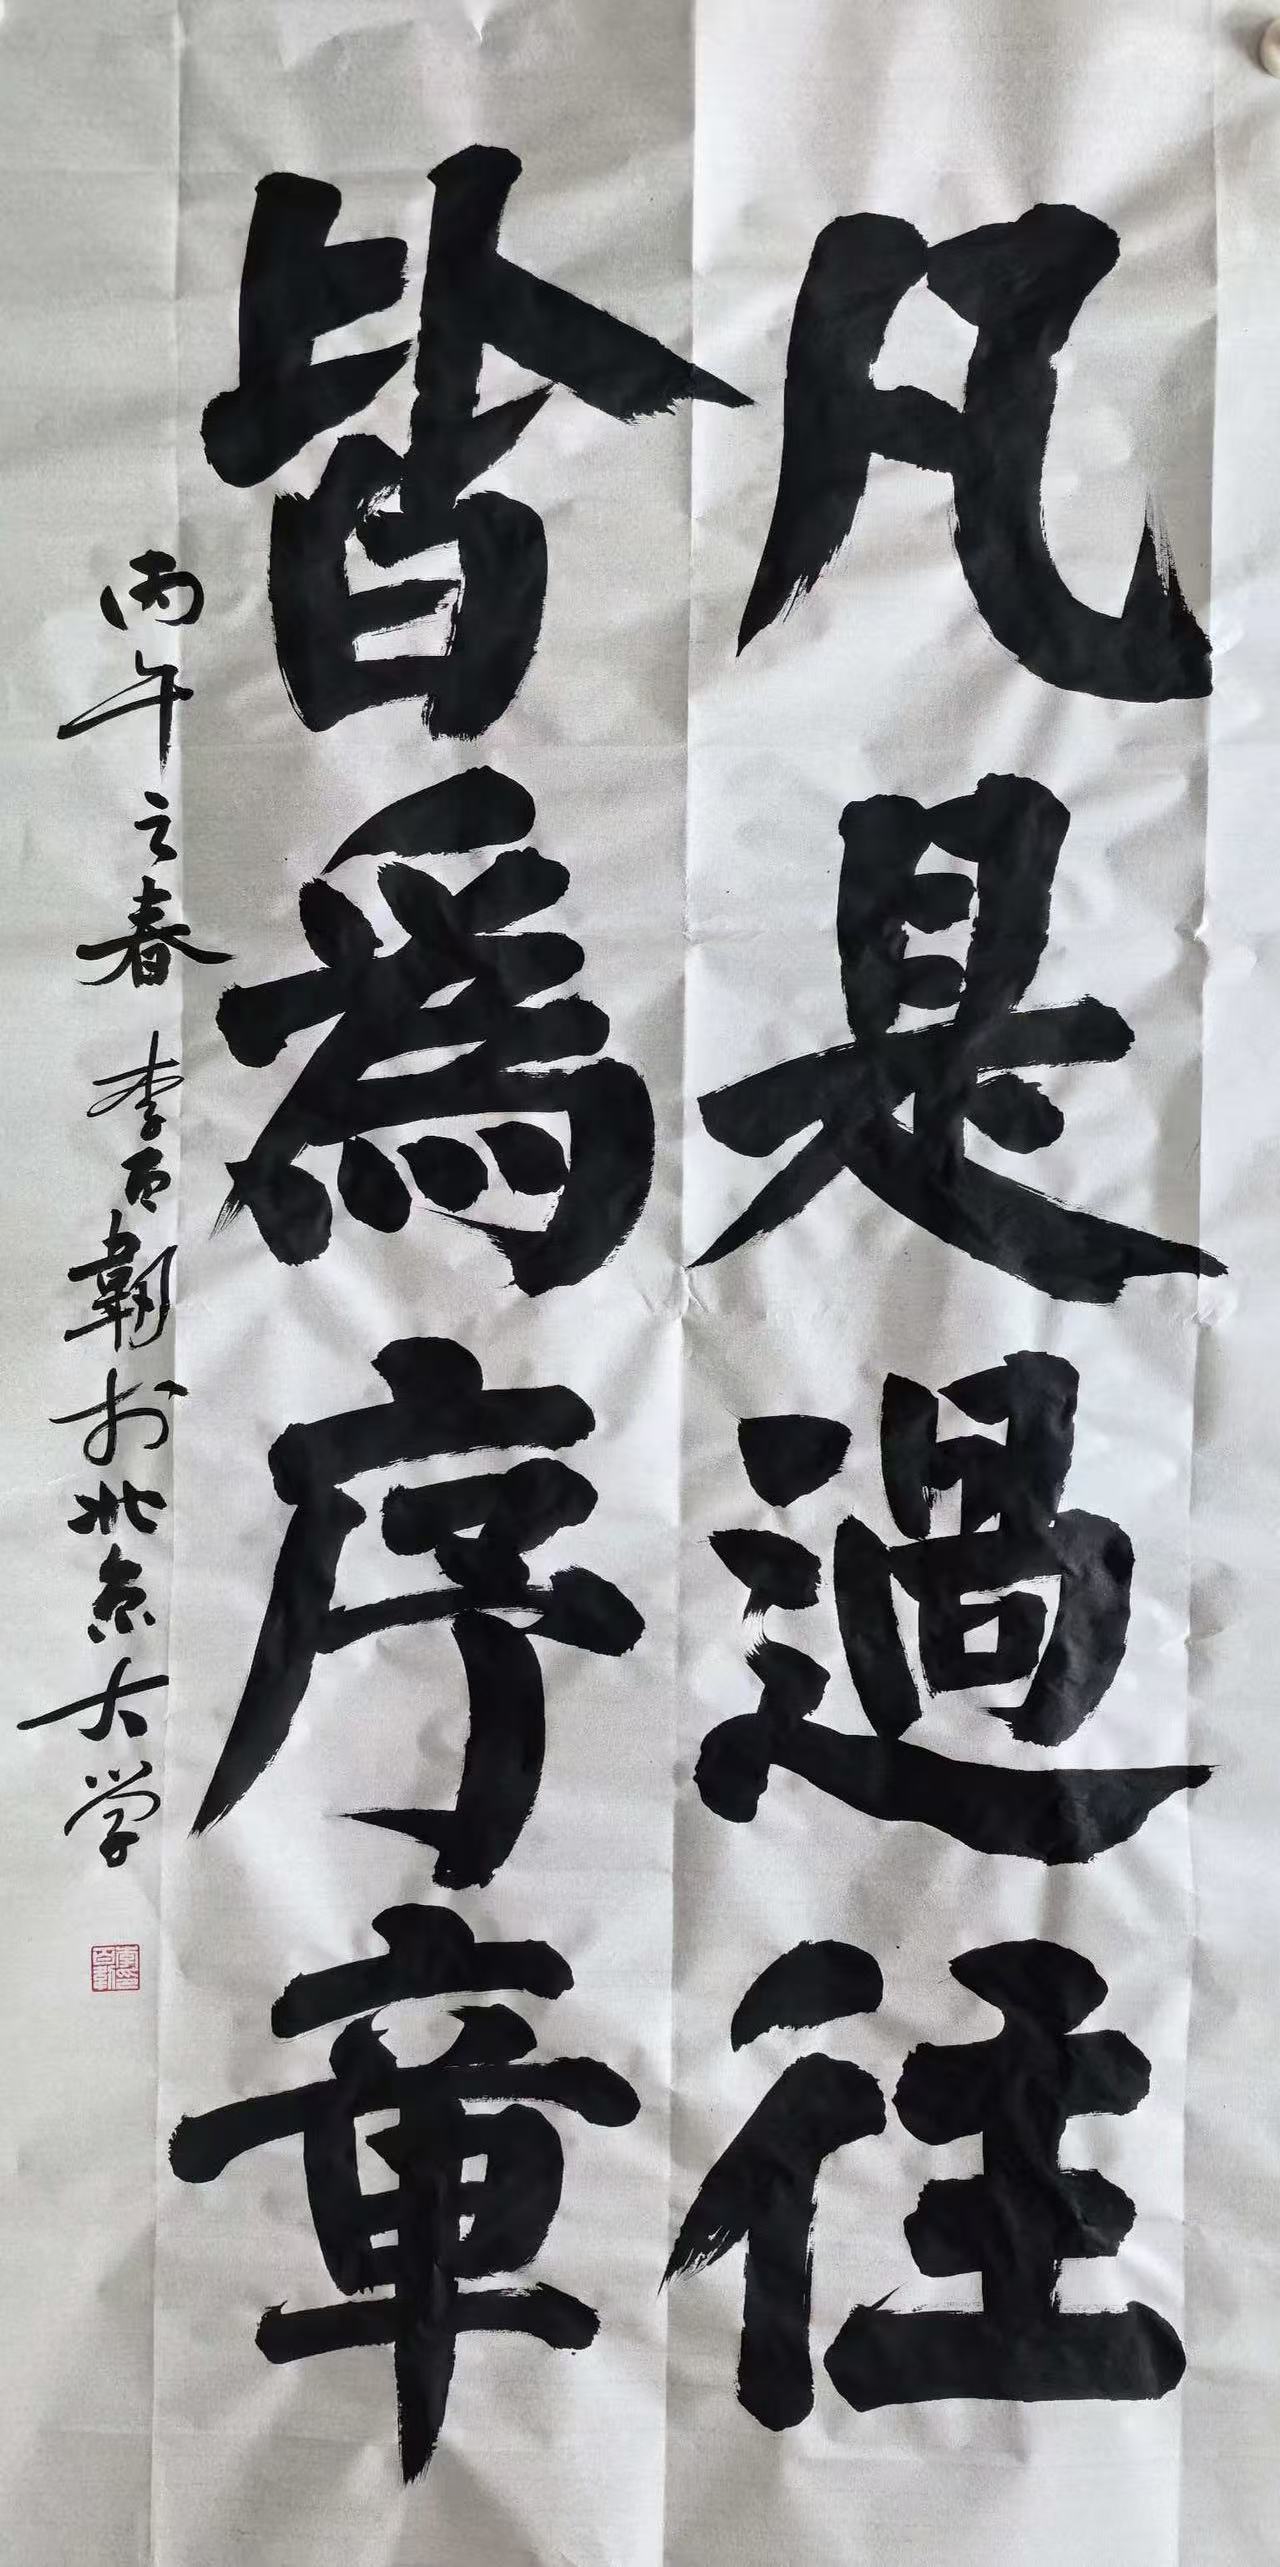 凡是過往
皆為序章
丙午之春 李百韌于北京大学